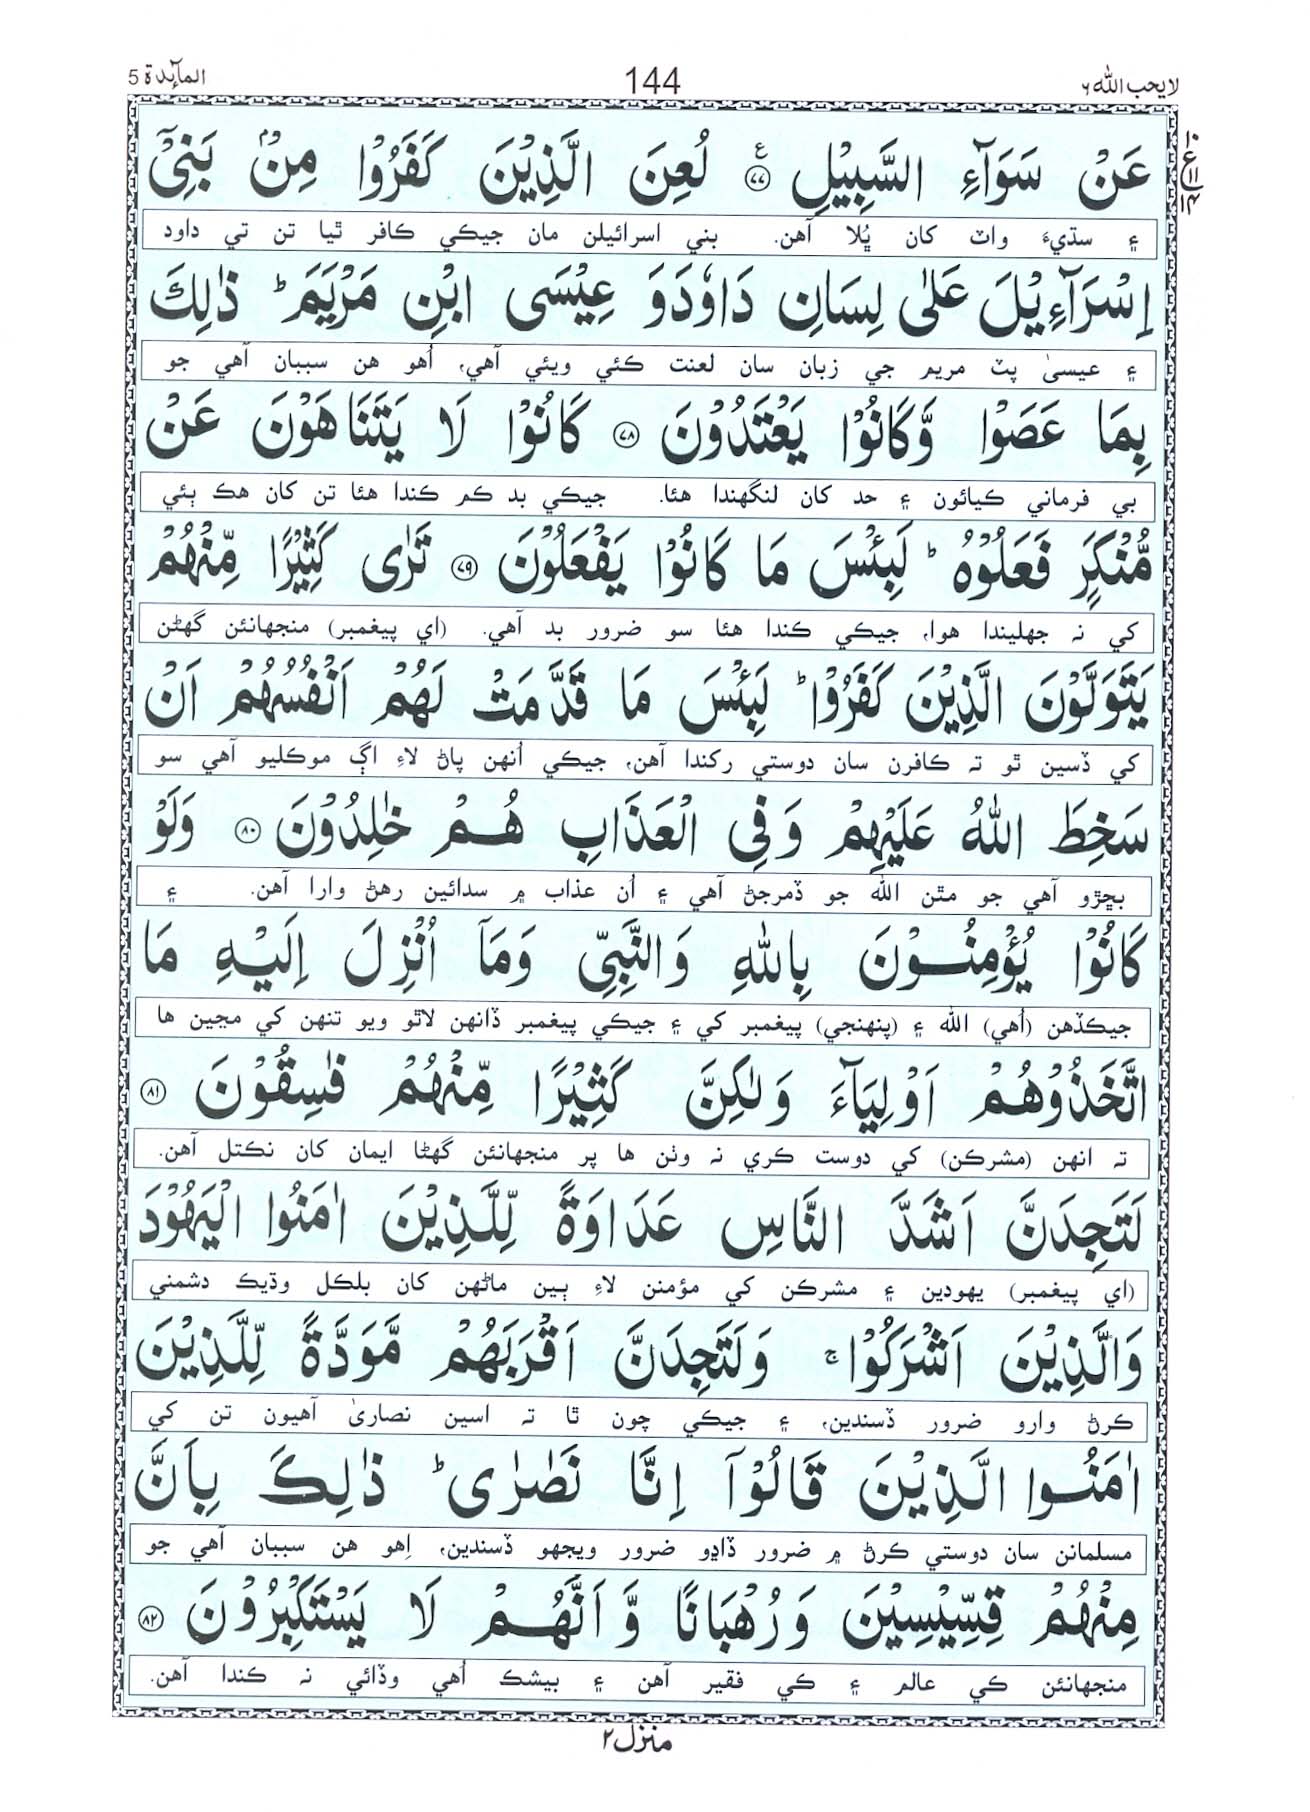 لا يحب الله ٦
144
المآئدة 5
عَنْ سَوَآءِ السَّبِيْلِ ﴿۷۷﴾ ع لُعِنَ الَّذِيْنَ كَفَرُوْا مِنْۢ بَنِىْٓ
۽ سڌيءَ واٽ کان ڀُلا آهن. بني اسرائيلن مان جيڪي ڪافر ٿيا تن تي داود
اِسْرَآءِيْلَ عَلٰى لِسَانِ دَاوٗدَ وَ عِيْسَى ابْنِ مَرْيَمَ ؕ ذٰلِكَ
۽ عيسىٰ پٽ مريم جي زبان سان لعنت ڪئي ويئي آهي، اُهو هن سببان آهي جو
بِمَا عَصَوْا وَّكَانُوْا يَعْتَدُوْنَ ﴿۷۸﴾ كَانُوْا لَا يَتَنَاهَوْنَ عَنْ
بي فرماني ڪيائون ۽ حد کان لنگهندا هئا. جيڪي بد ڪم ڪندا هئا تن کان هڪ ٻئي
مُّنْكَرٍ فَعَلُوْهُ ؕ لَبِئْسَ مَا كَانُوْا يَفْعَلُوْنَ ﴿۷۹﴾ تَرٰى كَثِيْرًا مِّنْهُمْ
کي نہ جهليندا هوا، جيڪي ڪندا هئا سو ضرور بد آهي. (اي پيغمبر) منجهانئن گهڻن
يَتَوَلَّوْنَ الَّذِيْنَ كَفَرُوْا ؕ لَبِئْسَ مَا قَدَّمَتْ لَهُمْ اَنْفُسُهُمْ اَنْ
کي ڏسين ٿو تہ ڪافرن سان دوستي رکندا آهن، جيڪي اُنهن پاڻ لاءِ اڳ موڪليو آهي سو
سَخِطَ اللّٰهُ عَلَيْهِمْ وَفِى الْعَذَابِ هُمْ خٰلِدُوْنَ ﴿۸۰﴾ وَلَوْ
بڇڙو آهي جو مٿن الله جو ڏمرجڻ آهي ۽ اُن عذاب ۾ سدائين رهڻ وارا آهن. ۽
كَانُوْا يُؤْمِنُوْنَ بِاللّٰهِ وَالنَّبِىِّ وَمَآ اُنْزِلَ اِلَيْهِ مَا
جيڪڏهن (اُهي) الله ۽ (پنهنجي) پيغمبر کي ۽ جيڪي پيغمبر ڏانهن لاٿو ويو تنهن کي مڃين ها
اتَّخَذُوْهُمْ اَوْلِيَآءَ وَلٰكِنَّ كَثِيْرًا مِّنْهُمْ فٰسِقُوْنَ ﴿۸۱﴾
تہ انهن (مشرڪن) کي دوست ڪري نہ وٺن ها پر منجهانئن گهڻا ايمان کان نڪتل آهن.
لَتَجِدَنَّ اَشَدَّ النَّاسِ عَدَاوَةً لِّلَّذِيْنَ اٰمَنُوا الْيَهُوْدَ
(اي پيغمبر) يهودين ۽ مشرڪن کي مؤمنن لاءِ ٻين ماڻهن کان بلڪل وڌيڪ دشمني
وَالَّذِيْنَ اَشْرَكُوْا ۚ وَلَتَجِدَنَّ اَقْرَبَهُمْ مَّوَدَّةً لِّلَّذِيْنَ
ڪرڻ وارو ضرور ڏسندين، ۽ جيڪي چون ٿا تہ اسين نصارىٰ آهيون تن کي
اٰمَنُوا الَّذِيْنَ قَالُوْٓا اِنَّا نَصٰرٰى ؕ ذٰلِكَ بِاَنَّ
مسلمانن سان دوستي ڪرڻ ۾ ضرور ڏاڍو ضرور ويجهو ڏسندين، اِهو هن سببان آهي جو
مِنْهُمْ قِسِّيْسِيْنَ وَرُهْبَانًا وَّاَنَّهُمْ لَا يَسْتَكْبِرُوْنَ ﴿۸۲﴾
منجهانئن کي عالم ۽ کي فقير آهن ۽ بيشڪ اُهي وڏائي نہ ڪندا آهن.
منزل ۲